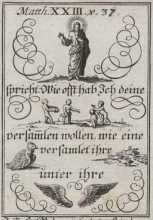 Matth. XXIII. v. 37
spricht. Wie offt hab Ich deine
versamlen wollen, wie eine
versamlet ihre
unter ihre